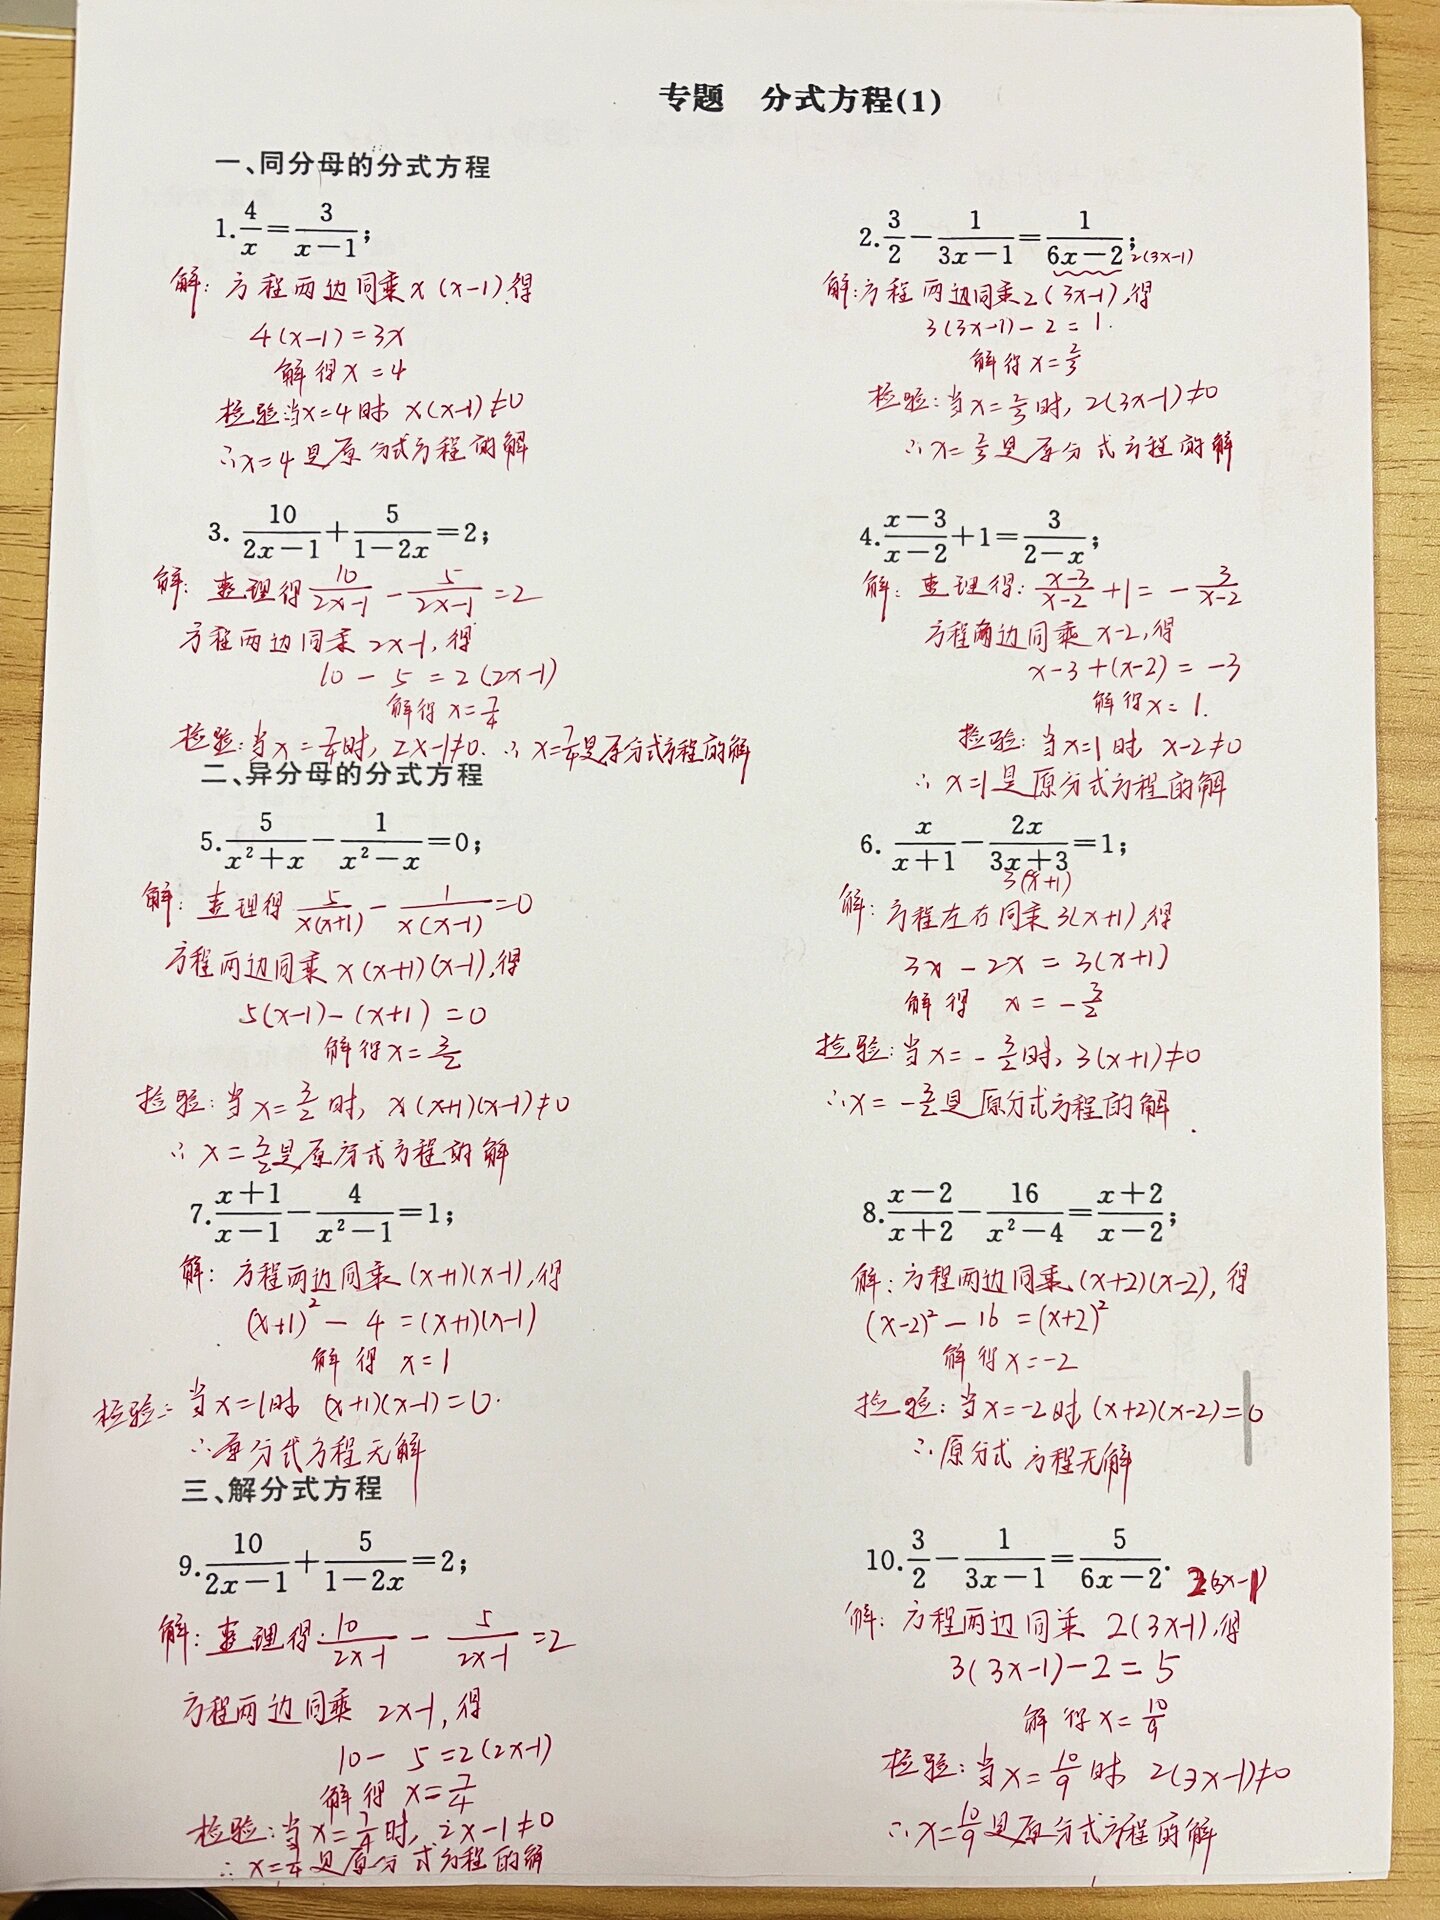 专题 分式方程(1)
一、同分母的分式方程
1. 4/x = 3/(x-1);
解: 方程两边同乘x(x-1),得
4(x-1)=3x
解得x=4
检验:当x=4时 x(x-1)≠0
∴x=4是原分式方程的解
2. 3/2 - 1/(3x-1) = 1/(6x-2);
2(3x-1)
解:方程两边同乘2(3x-1),得
3(3x-1)-2=1.
解得x=2/3
检验:当x=2/3时, 2(3x-1)≠0
∴x=2/3是原分式方程的解
3. 10/(2x-1) + 5/(1-2x) = 2;
解: 整理得 10/(2x-1) - 5/(2x-1) = 2
方程两边同乘 2x-1,得
10-5=2(2x-1)
解得x=7/4
检验:当x=7/4时, 2x-1≠0. ∴x=7/4是原分式方程的解
4. (x-3)/(x-2) + 1 = 3/(2-x);
解: 整理得: (x-3)/(x-2) + 1 = - 3/(x-2)
方程两边同乘 x-2,得
x-3+(x-2)=-3
解得x=1.
检验: 当x=1时 x-2≠0
∴x=1是原分式方程的解
二、异分母的分式方程
5. 5/(x²+x) - 1/(x²-x) = 0;
解: 整理得 5/(x(x+1)) - 1/(x(x-1)) = 0
方程两边同乘x(x+1)(x-1),得
5(x-1)-(x+1)=0
解得x=3/2
检验:当x=3/2时, x(x+1)(x-1)≠0
∴x=3/2是原分式方程的解
6. x/(x+1) - 2x/(3x+3) = 1;
3(x+1)
解: 方程左右同乘3(x+1),得
3x-2x=3(x+1)
解得 x=-3/2
检验:当x=-3/2时, 3(x+1)≠0
∴x=-3/2是原分式方程的解.
7. (x+1)/(x-1) - 4/(x²-1) = 1;
解: 方程两边同乘(x+1)(x-1),得
(x+1)²-4=(x+1)(x-1)
解得 x=1
检验: 当x=1时 (x+1)(x-1)=0.
∴原分式方程无解
8. (x-2)/(x+2) - 16/(x²-4) = (x+2)/(x-2);
解:方程两边同乘(x+2)(x-2),得
(x-2)²-16=(x+2)²
解得x=-2
检验:当x=-2时(x+2)(x-2)=0
∴原分式方程无解
三、解分式方程
9. 10/(2x-1) + 5/(1-2x) = 2;
解:整理得: 10/(2x-1) - 5/(2x-1) = 2
方程两边同乘 2x-1,得
10-5=2(2x-1)
解得 x=7/4
检验:当x=7/4时, 2x-1≠0
∴x=7/4是原分式方程的解
10. 3/2 - 1/(3x-1) = 5/(6x-2).
2(3x-1)
解: 方程两边同乘 2(3x-1),得
3(3x-1)-2=5
解得x=10/9
检验:当x=10/9时 2(3x-1)≠0
∴x=10/9是原分式方程的解